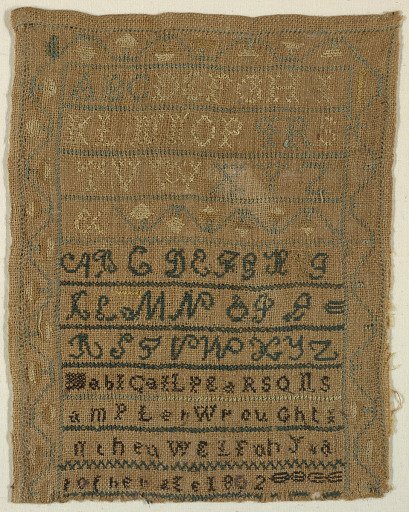 ABCDEFGHI
KLMNOP RS
TVW
&
ABCDEFGHI
KLMNOPQ
RSTVWXYZ
abIGaILPEaRSONS
amPLerWrouGhtI
rofherage1802